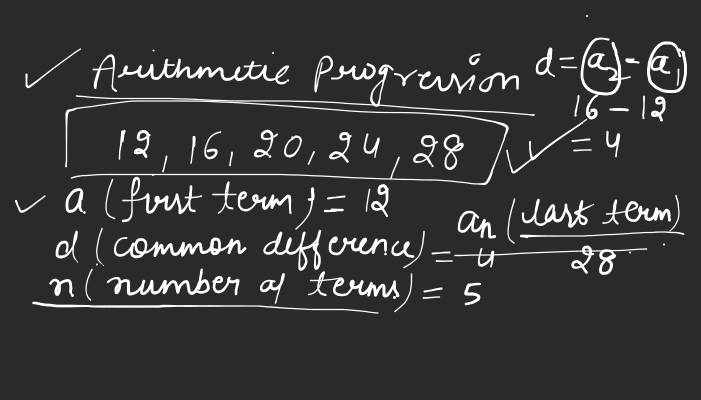 Arithmetic Progression
d = a2 - a1
16 - 12
= 4
12, 16, 20, 24, 28
a (first term) = 12
an (last term)
28
d (common difference) = 4
n (number of terms) = 5